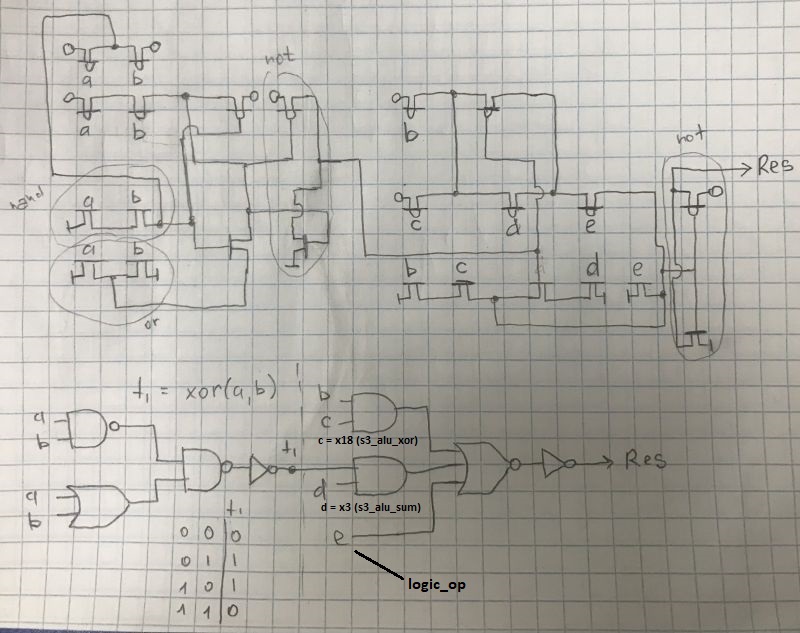 a b
a b
not
nand
a b
a b
or
b
c d e
b c d e
not
Res
f₁ = xor(a,b)
a
b
a
b
f₁
b
c
c = x18 (s3_alu_xor)
d
d = x3 (s3_alu_sum)
e
logic_op
Res
f₁
0 0 0
0 1 1
1 0 1
1 1 0